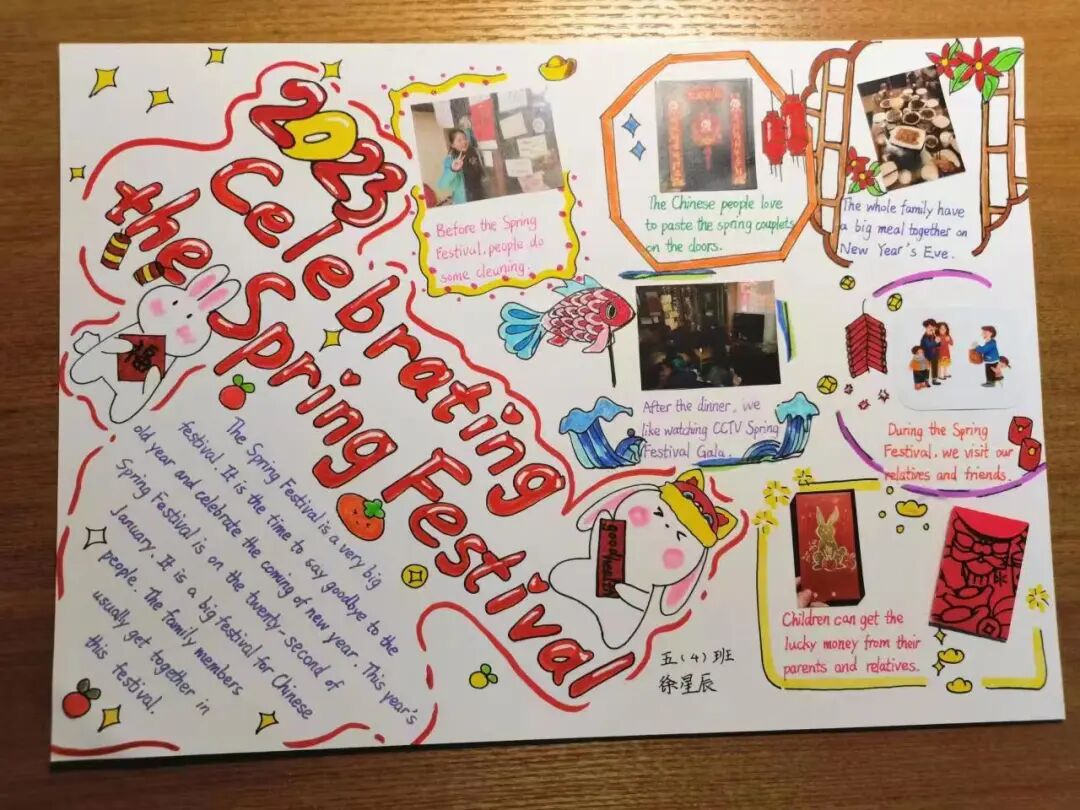 2023
Celebrating
the Spring Festival
福
The Spring Festival is a very big
festival. It is the time to say goodbye to the
old year and celebrate the coming of new year. This year's
Spring Festival is on the twenty-second of
January. It is a big festival for Chinese
people. The family members
usually get together in
this festival.
Before the Spring
Festival, people do
some cleuning.
The Chinese people love
to paste the spring couplets
on the doors.
The whole family have
a big meal together on
New Year's Eve.
After the dinner, we
like watching CCTV Spring
Festival Gala.
During the Spring
Festival, we visit our
relatives and friends.
good health
Children can get the
lucky money from their
parents and relatives.
五(4)班
徐星辰